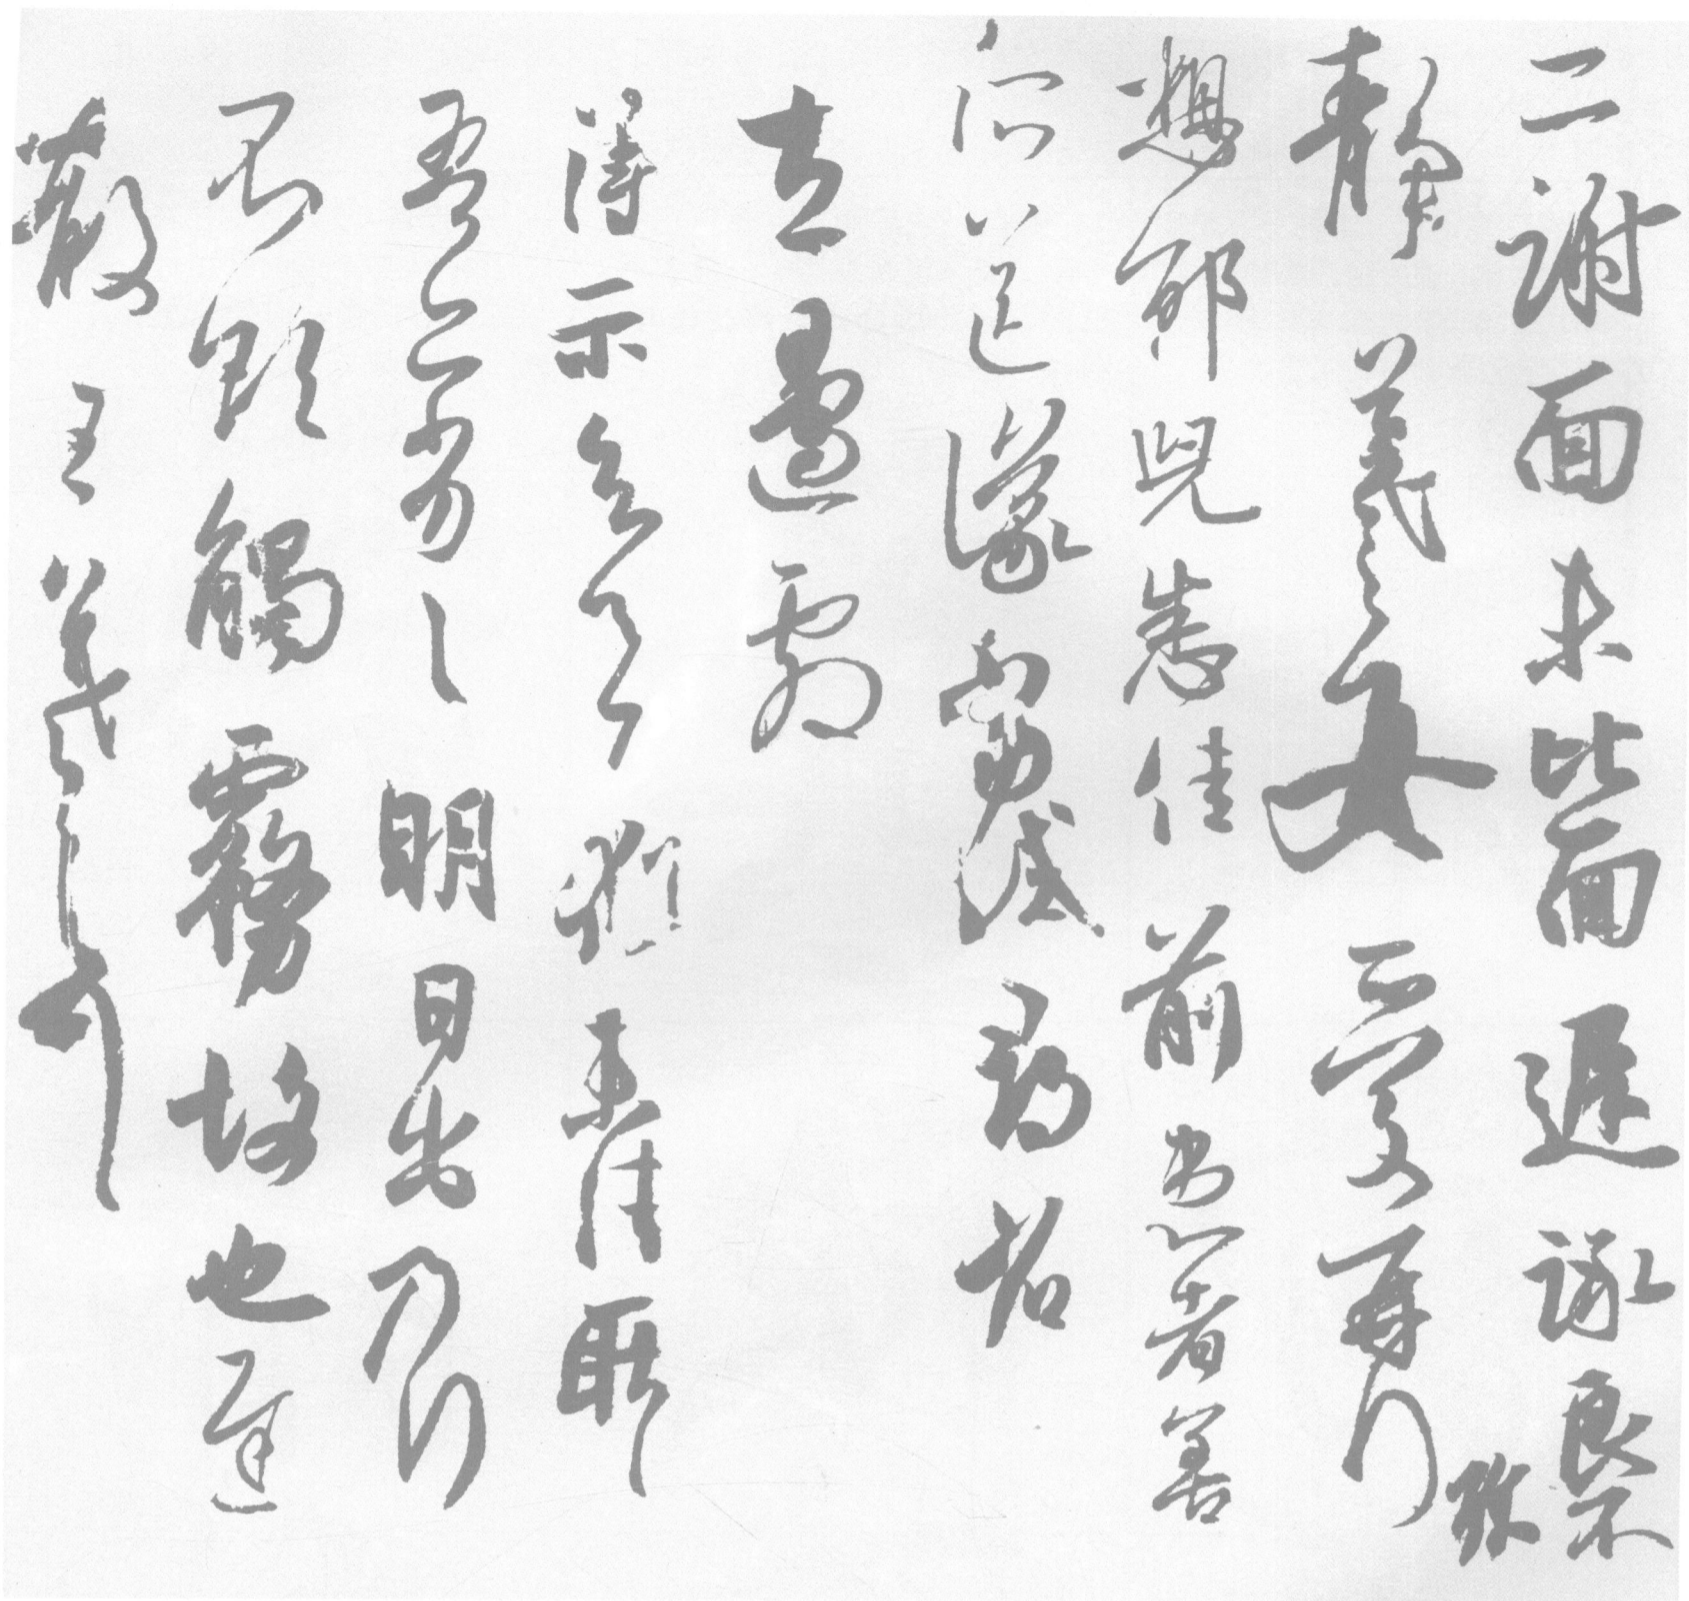 二謝面未比面遲詠良不
珎
靜羲之女愛再拜
想邰兒悉佳前患者善
所送議當試尋省
左邊劇
得示知足下猶未佳耿々
吾亦劣々明日出乃行
不欲觸霧故也遲
散王羲之頓首